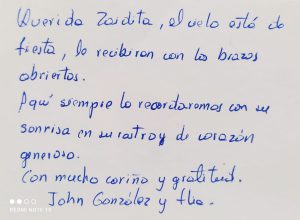 Querida Zoidita, el cielo está de
fiesta, lo recibieron con los brazos
abiertos.
Aquí siempre lo recordaremos con su
sonrisa en su rostro y de corazón
generoso.
Con mucho cariño y gratitud.
John González y flia.
REDMI NOTE 13